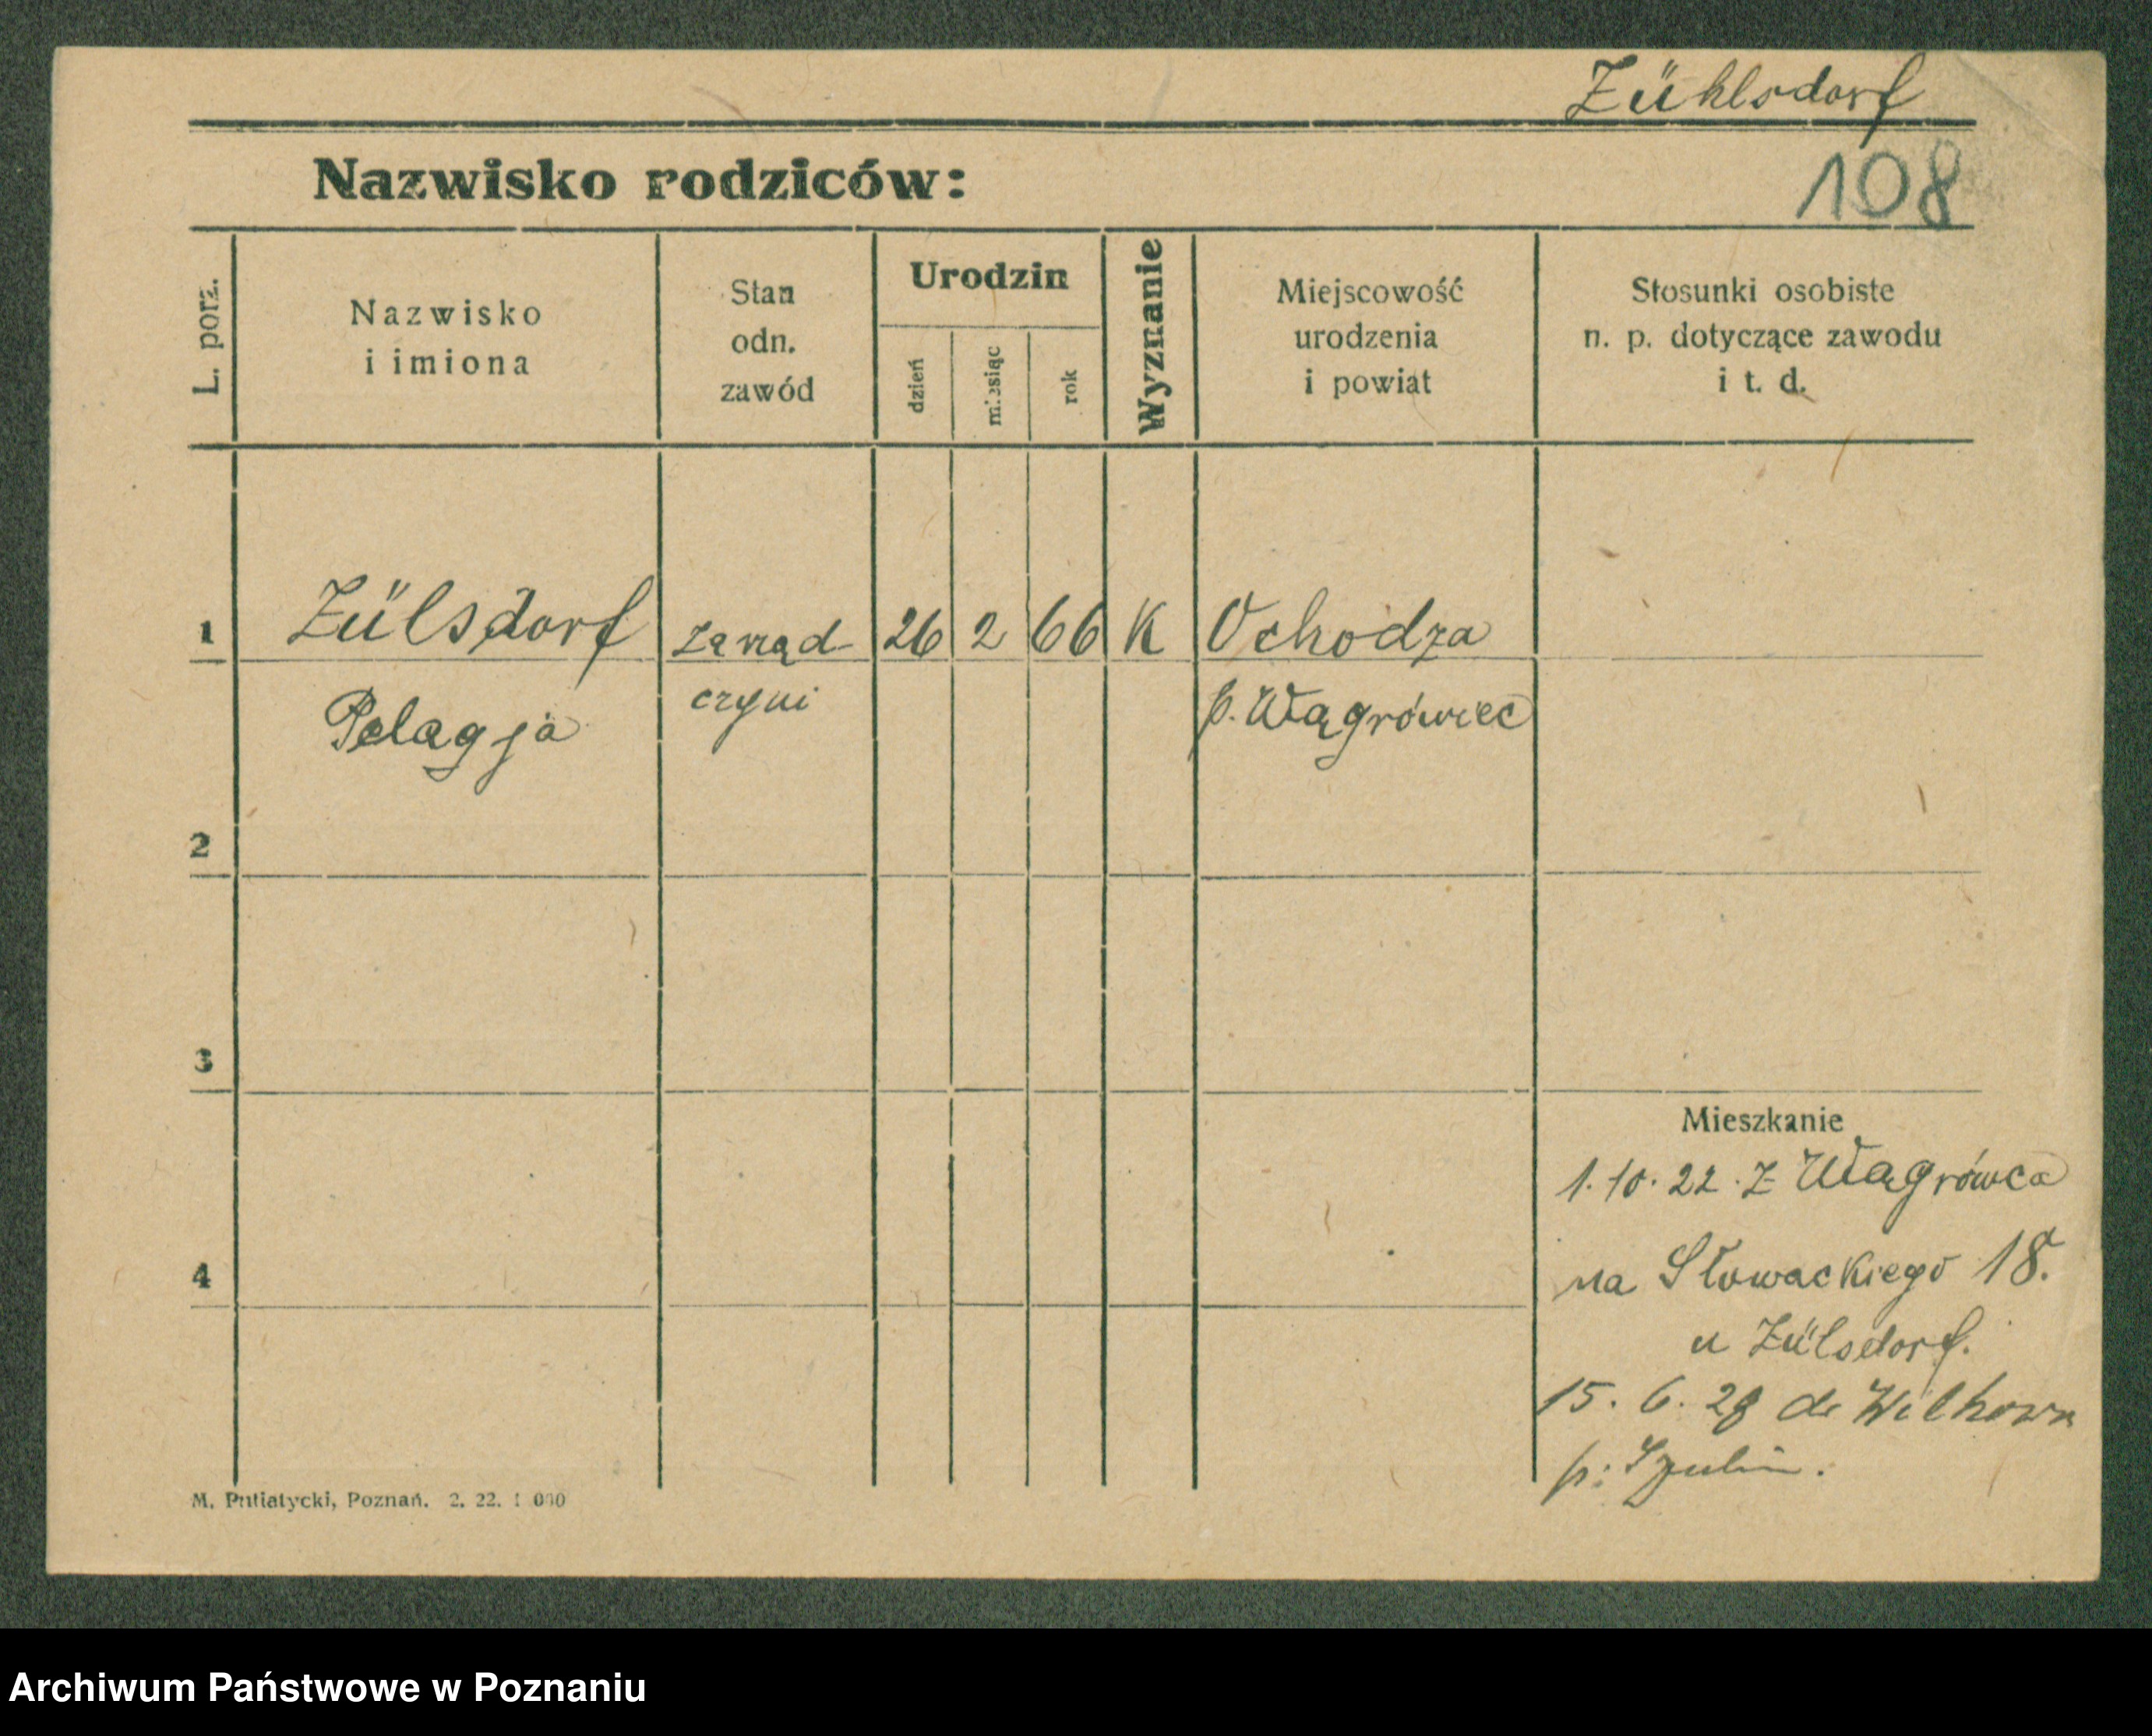 Zühlsdorf
Nazwisko rodziców:
108
L. porz.
Nazwisko
i imiona
Stan
odn.
zawód
Urodzin
dzień
miesiąc
rok
Wyznanie
Miejscowość
urodzenia
i powiat
Stosunki osobiste
n. p. dotyczące zawodu
i t. d.
1 Zülsdorf zarząd- 26 2 66 K Ochodza
Pelagja czyni p. Wągrówiec
2
3
Mieszkanie
1. 10. 22. Z Wągrówca
4
na Słowackiego 18.
u Zülsdorf.
15. 6. 28 do
p.
M. Putiatycki, Poznań. 2. 22. 1 000
Archiwum Państwowe w Poznaniu